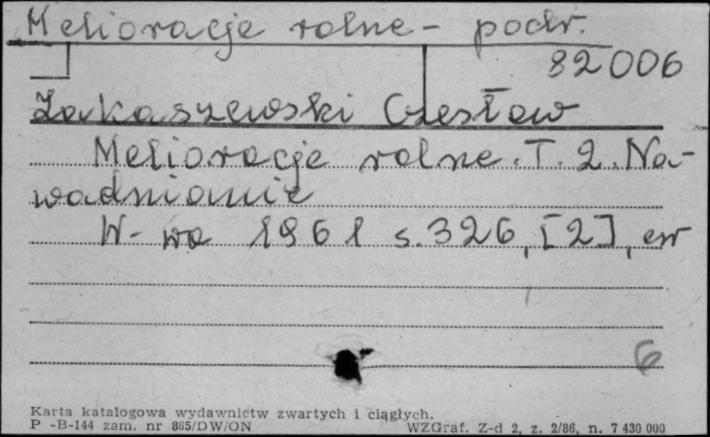 Melioracje rolne - podr.
82006
Zakaszewski Czesław
Melioracje rolne. T. 2. Na-
wadnianie
W-wa 1961 s. 326, [2], err
6
Karta katalogowa wydawnictw zwartych i ciągłych.
P -B-144 zam. nr 865/DW/ON WZGraf. Z-d 2, z. 2/86, n. 7 430 000